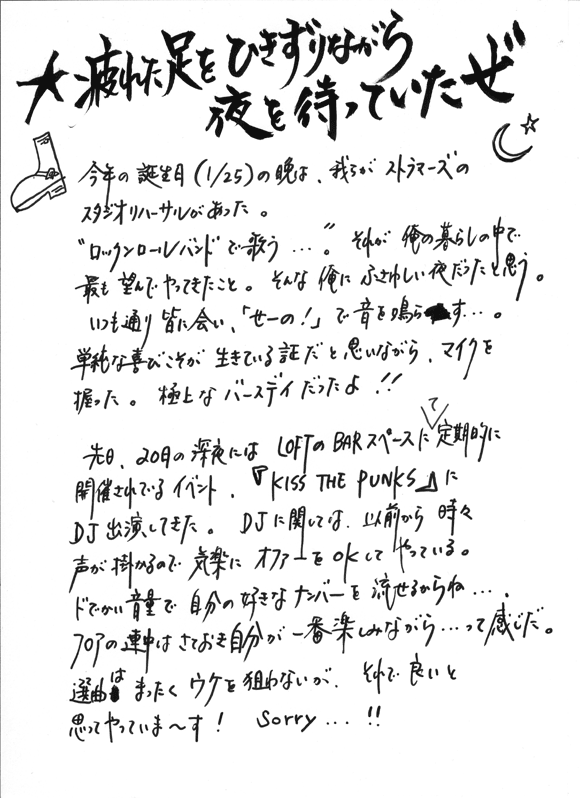 ★疲れた足をひきずりながら
夜を待っていたぜ
今年の誕生日(1/25)の晩は、我らがストラマーズの
スタジオリハーサルがあった。
“ロックンロールバンドで歌う…。” それが俺の暮らしの中で
最も望んでやってきたこと。そんな俺にふさわしい夜だったと思う。
いつも通り皆に会い、「せーの!」で音を鳴らす…。
単純な喜びこそが生きている証だと思いながら、マイクを
握った。極上なバースデイだったよ!!
先日、20日の深夜にはLOFTのBARスペースにて定期的に
開催されているイベント、『KISS THE PUNKS』に
DJ出演してきた。DJに関しては、以前から時々
声が掛かるので気楽にオファーをOKしてやっている。
ドでかい音量で自分の好きなナンバーを流せるからね…。
フロアの連中はさておき自分が一番楽しみながら…って感じだ。
選曲はまったくウケを狙わないが、それで良いと
思ってやっていま〜す! Sorry...!!